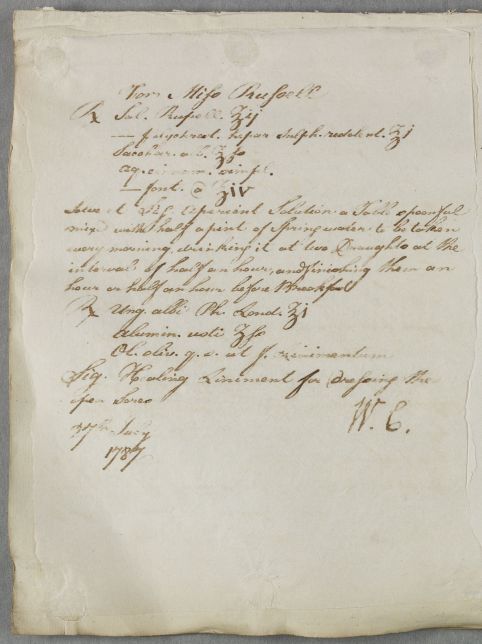 For Miss Russell
℞ Sal. Rupell. ℥ij
— hepar Sulph. ʒj
Sacchar. alb. ℥ss
aq. cinnam. simpl.
— font. a ℥iv
Solve et Sig. Aperient Solution a Table spoonful
mixed with half a pint of Spring water to be taken
every morning, drinking it at two Draughts at the
interval of half an hour, and finishing them an
hour or half an hour before Breakfast
℞ Ung. albi Ph. Lond. ℥j
alumin. usti ʒss
Ol. oliv. q. s. ut f. Linimentum
Sig. Healing Liniment for Dressing the
open Sores
W. C.
July
1787